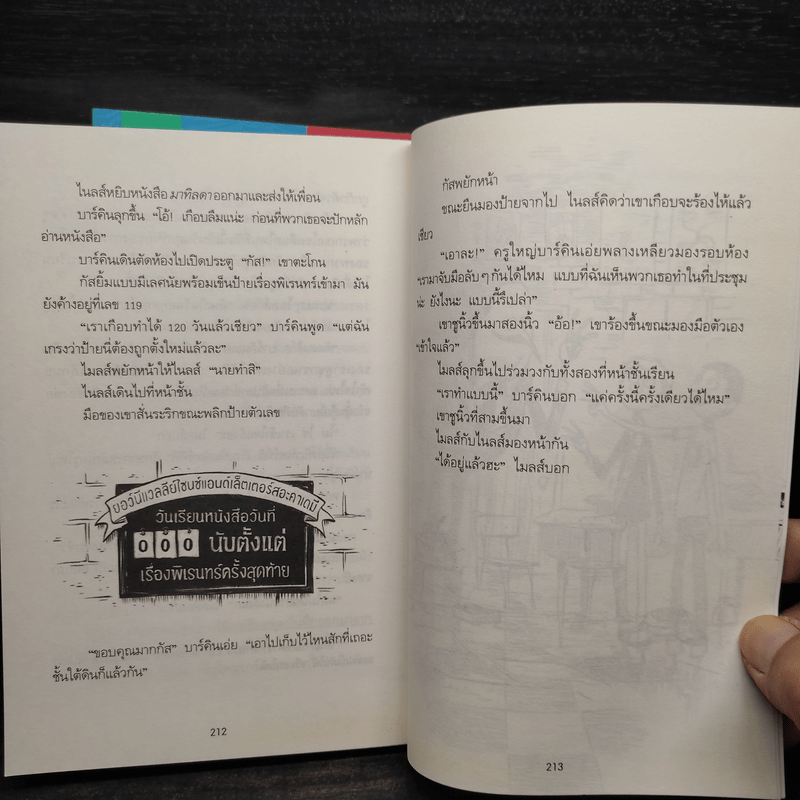 ไนลส์หยิบหนังสือ มาทิลดา ออกมาและส่งให้เพื่อน
บาร์คินลุกขึ้น “โอ้! เกือบลืมแน่ะ ก่อนที่พวกเธอจะปักหลัก
อ่านหนังสือ”
บาร์คินเดินตัดห้องไปเปิดประตู “กัส!” เขาตะโกน
กัสยิ้มแบบมีเลศนัยพร้อมเข็นป้ายเรื่องพิเรนทร์เข้ามา มัน
ยังค้างอยู่ที่เลข 119
“เราเกือบทำได้ 120 วันแล้วเชียว” บาร์คินพูด “แต่ฉัน
เกรงว่าป้ายนี่ต้องถูกตั้งใหม่แล้วละ”
ไมลส์พยักหน้าให้ไนลส์ “นายทำสิ”
ไนลส์เดินไปที่หน้าชั้น
มือของเขาสั่นระริกขณะพลิกป้ายตัวเลข
ยอว์นีแวลลีย์ไซนซ์แอนด์เล็ตเตอร์สอะคาเดมี
วันเรียนหนังสือวันที่
000 นับตั้งแต่
เรื่องพิเรนทร์ครั้งสุดท้าย
“ขอบคุณมากกัส” บาร์คินเอ่ย “เอาไปเก็บไว้ไหนสักที่เถอะ
ชั้นใต้ดินก็แล้วกัน”
212
กัสพยักหน้า
ขณะยืนมองป้ายจากไป ไนลส์คิดว่าเขาเกือบจะร้องไห้แล้ว
เชียว
“เอาละ!” ครูใหญ่บาร์คินเอ่ยพลางเหลียวมองรอบห้อง
“เรามาจับมือลับๆ กันได้ไหม แบบที่ฉันเห็นพวกเธอทำในที่ประชุม
น่ะ ยังไงนะ แบบนี้รึเปล่า”
เขาชูนิ้วขึ้นมาสองนิ้ว “อ้อ!” เขาร้องขึ้นขณะมองมือตัวเอง
“เข้าใจแล้ว”
ไมลส์ลุกขึ้นไปร่วมวงกับทั้งสองที่หน้าชั้นเรียน
“เราทำแบบนี้” บาร์คินบอก “แค่ครั้งนี้ครั้งเดียวได้ไหม”
เขาชูนิ้วที่สามขึ้นมา
ไมลส์กับไนลส์มองหน้ากัน
“ได้อยู่แล้วฮะ” ไมลส์บอก
213